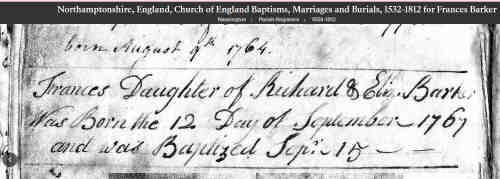 Northamptonshire, England, Church of England Baptisms, Marriages and Burials, 1532-1812 for Frances Barker
Parish Registers 1539-1812
born August 9th 1764.
Frances Daughter of Richard & Eliz. Barker
Was Born the 12 Day of September 1767
and was Baptized Sepr. 15 —